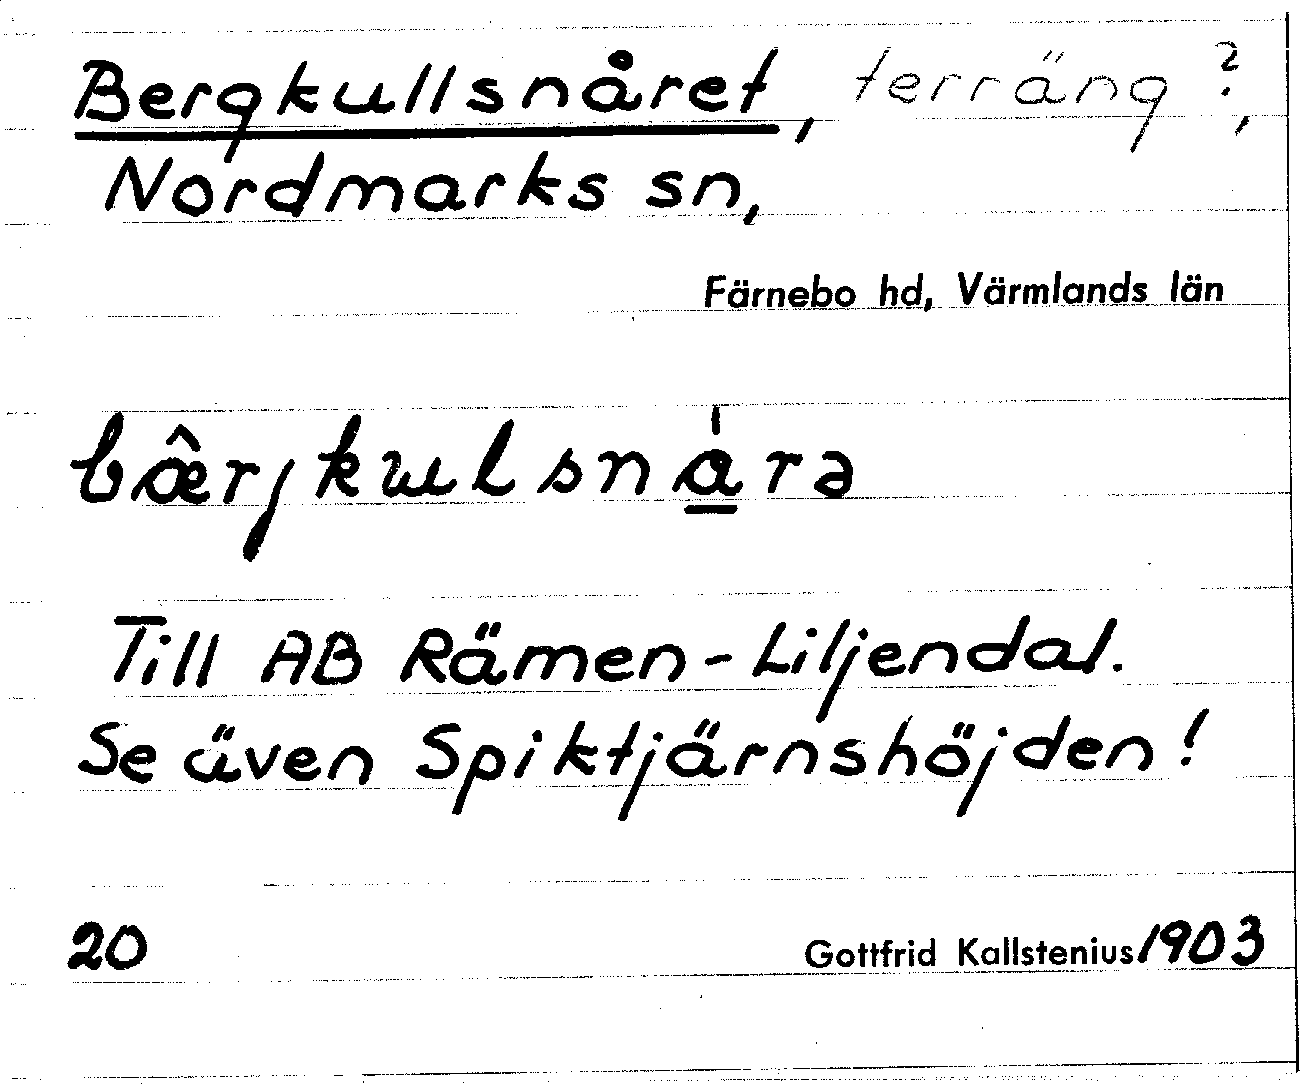 Bergkullsnåret, terräng?,
Nordmarks sn,
Färnebo hd, Värmlands län
bærjkulsnárə
Till AB Rämen-Liljendal.
Se även Spiktjärnshöjden!
20 Gottfrid Kallstenius 1903